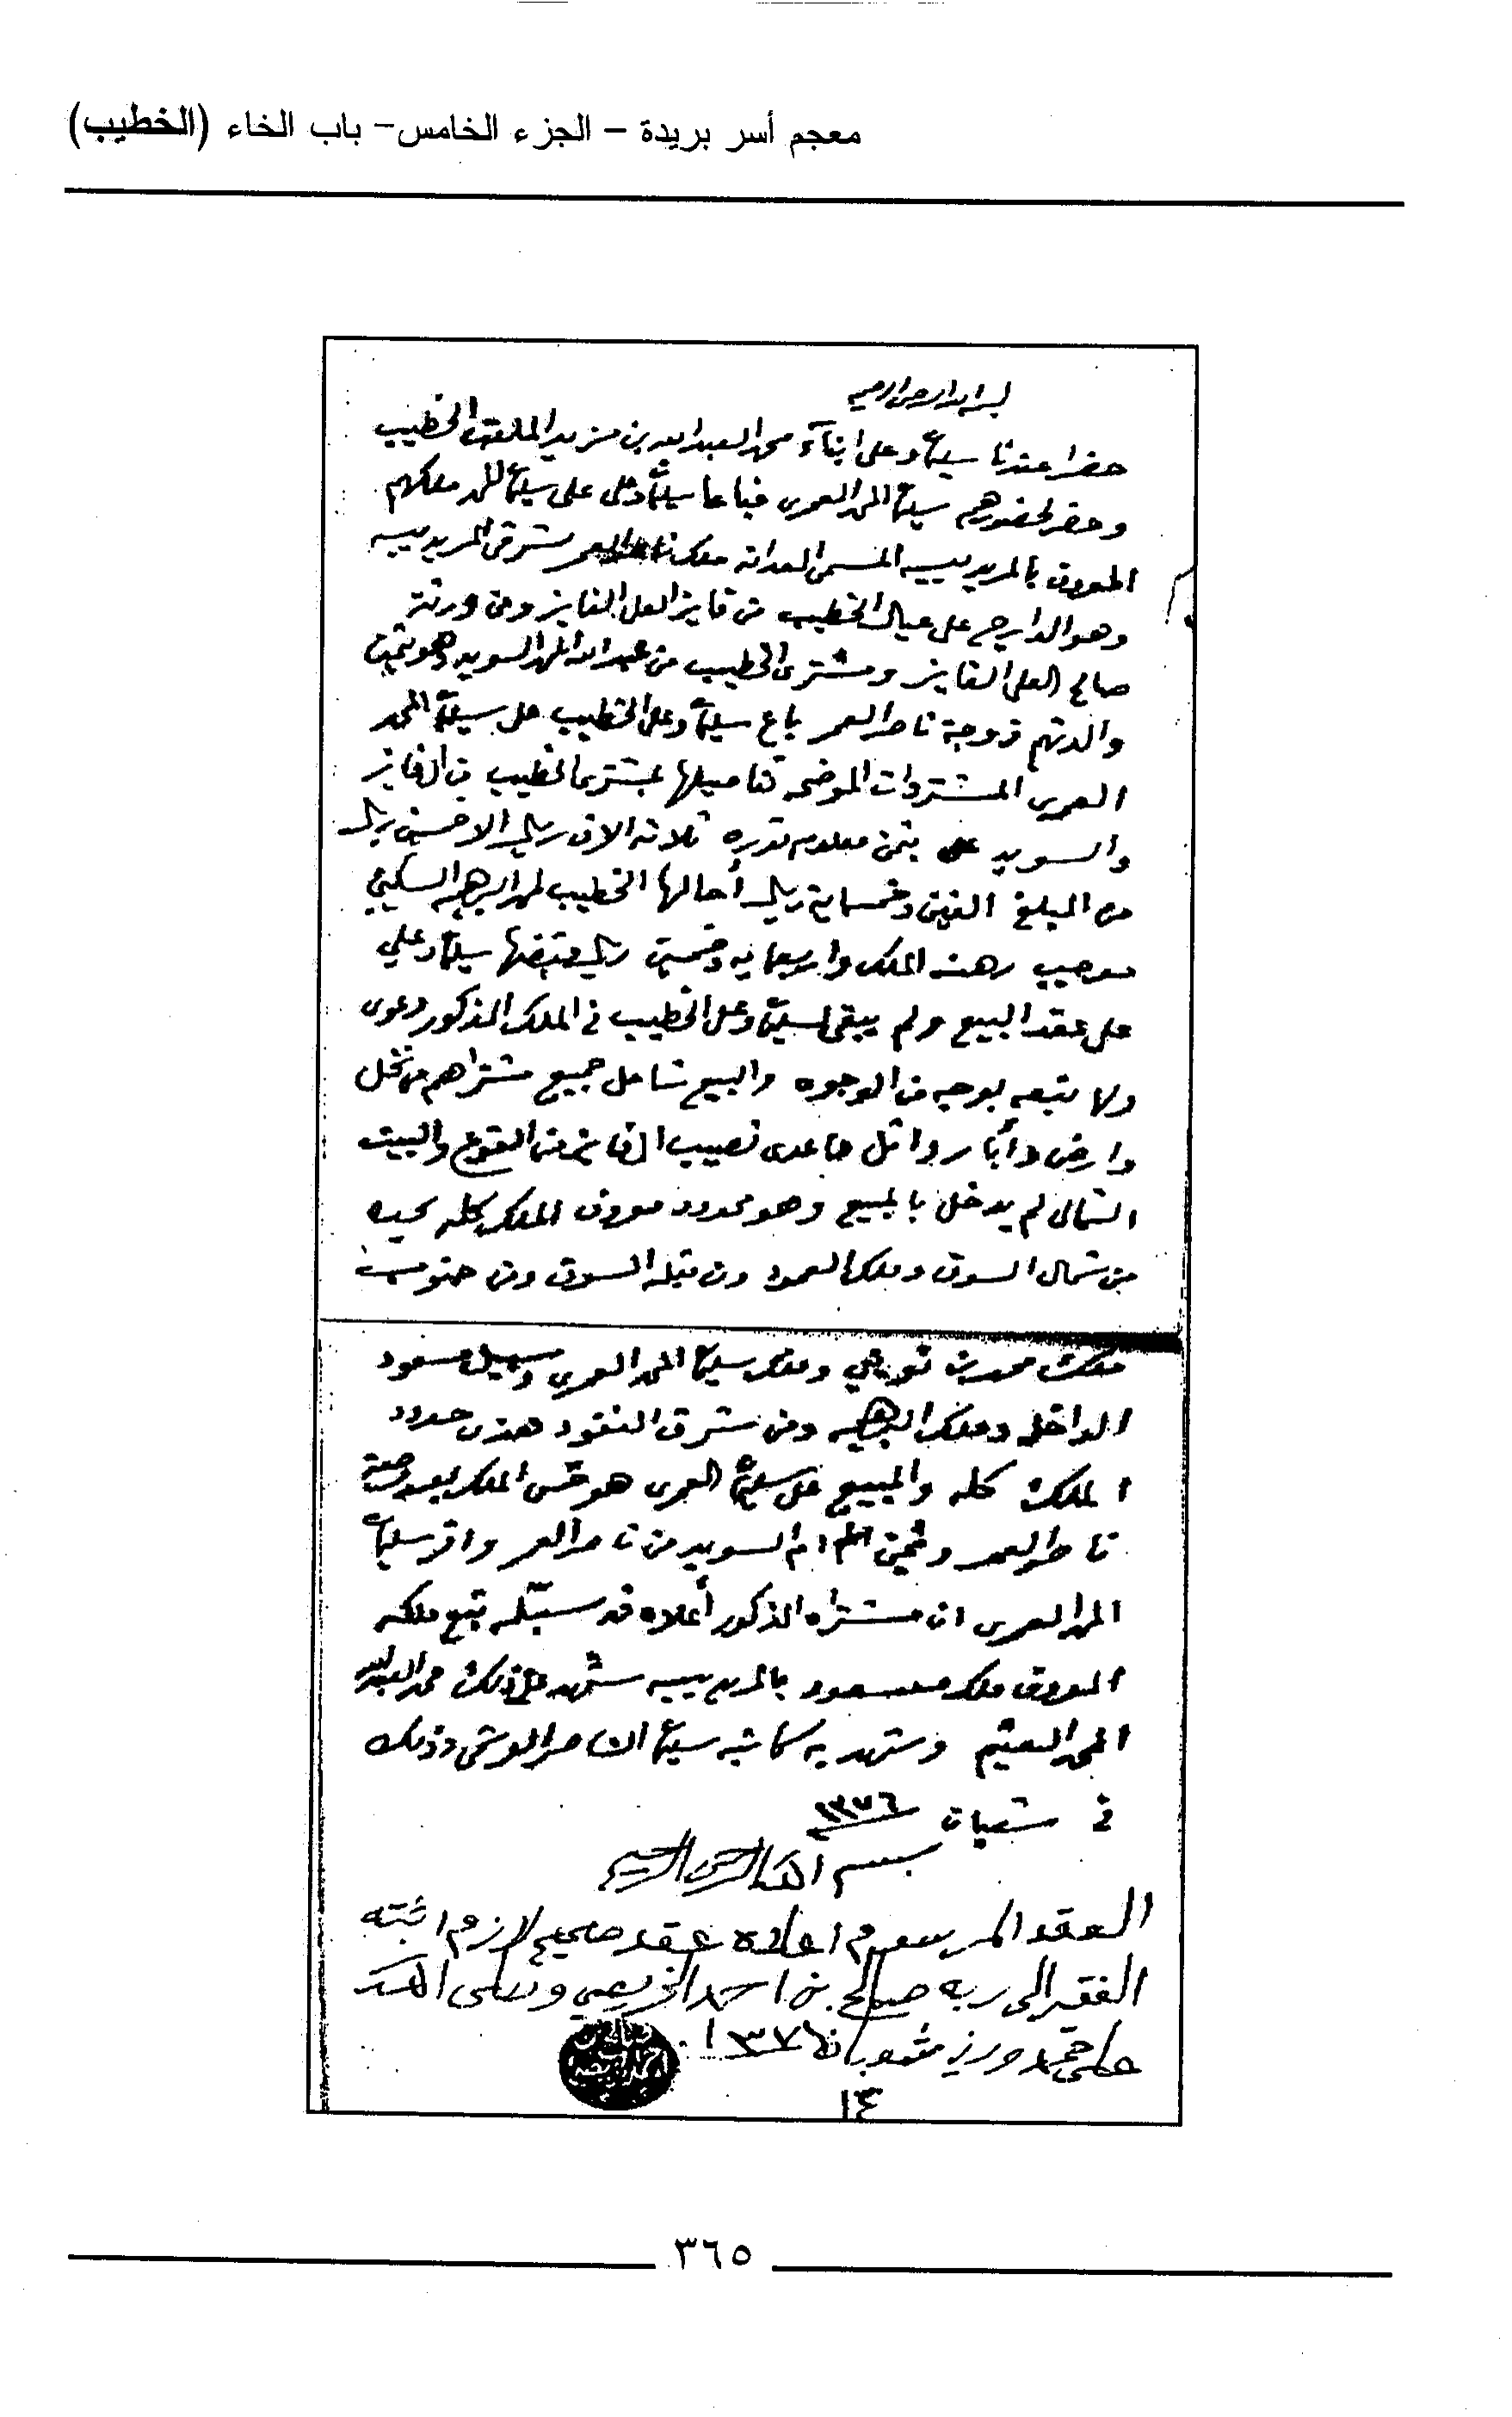 معجم أسر بريدة – الجزء الخامس – باب الخاء (الخطيب)
بسم الله الرحمن الرحيم
حضرا عندنا سليمان وعلى ابناء محمد العبدالله بن مزيد الملقب الخطيب
وحضر لحضورهم سليمان المحمد العمرى فباعا سليمان وعلى على سليمان المحمد ملكهم
المعروف بالمريديسيه المسمى ملك ناصر العمر شرقي المريديسيه
وهو الدارج على عيال الخطيب من فايز العلى الفايز ومن ورثة
صالح العلى الفايز ومشترى الخطيب من عبدالله المحمد السويد وهو ثمين
والدتهم زوجة ناصر العمر باع سليمان وعلى الخطيب على سليمان المحمد
العمرى المشتروات الموضحه تفاصيلها بمشترى الخطيب من الفايز
والسويد بثمن معلوم قدره ثلاثة الاف ريال الا خمسين ريال
من المبلغ الفين وخمسماية ريال أحالها الخطيب لمحمد البراهيم السكيتي
موجب رهنه الملك واربعمايه وخمسين ريال قبضها سليمان وعلي
على عقد البيع ولم يبقى لسليمان وعلى الخطيب في الملك المذكور دعوى
ولا تبعه بوجه من الوجوه والبيع شامل جميع مشتراهم من نخل
وارض وأبار واثل ما عدى نصيب الفايز من القوع والبيت
الشمالى لم يدخل بالمبيع وهو محدود معروف الملك كله يحده
من شمال السوق وملك العمود ومن قبله السوق ومن جنوب
ملك محمد بن نويصي وملك سليمان المحمد العمري وسبيل مسعود
الداخله وملك البراهيم ومن شرق النفود هذى حدود
الملك كله والمبيع على سليمان العمرى هو خمس الملك بعد وصية
ناصر العمر وثمين ام السويد من ناصر العمر واقر سليمان
المحمد العمرى ان مشتراه المذكور أعلاه قد سبّله تبع ملكه
المعروف ملك مسعود بالمريديسيه شهد على ذلك محمد العبدالله
المحمد العثيم وشهد به كاتبه سليمان الناصر الوشمى وذلك
في شعبان ١٣٧٦
بسم الله الرحمن الرحيم
العقد المرسوم اعلاه عقد صحيح لازم اثبته
الفقير الى ربه صالح بن احمد الخريصي وصلى الله
على محمد ورخ شعبان ١٣٧٦
١٣
٣٦٥